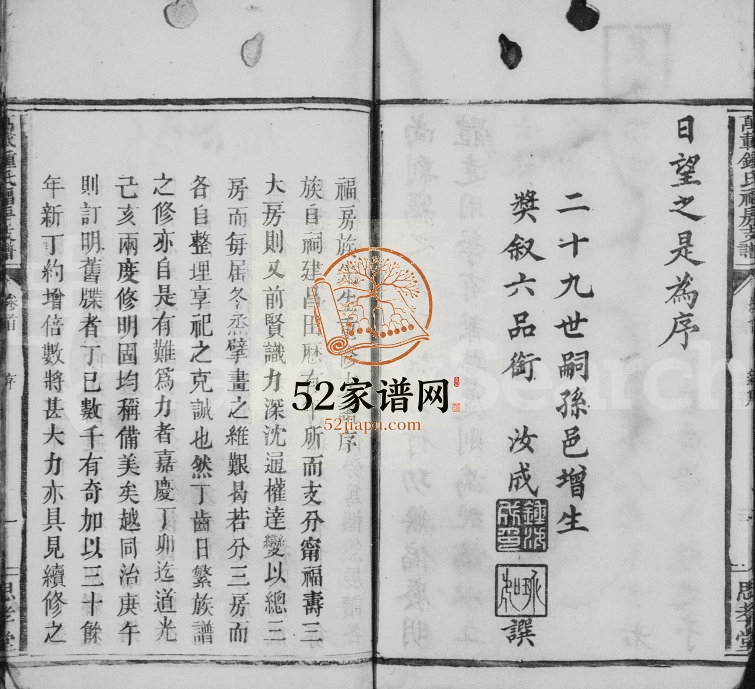 日望之是為序
二十九世嗣孫邑增生
獎叙六品銜 汝成 撰
鍾汝成印
福房族
序
族自祠建昌田歷有 所而支分甯福壽三
大房則又前賢識力深沈通權達變以總三
房而每届冬烝擘畫之維艱曷若分三房而
各自整理享祀之克誠也然丁齒日繁族譜
之修亦自是有難爲力者嘉慶丁卯迄道光
己亥兩度修明固均稱備美矣越同治庚午
則訂明舊牒者丁已數千有奇加以三十餘
年新丁約增倍數將甚大力亦具見續修之
卷首
序
一
思孝堂
思孝堂
52家谱网
52jiapu.com
Search